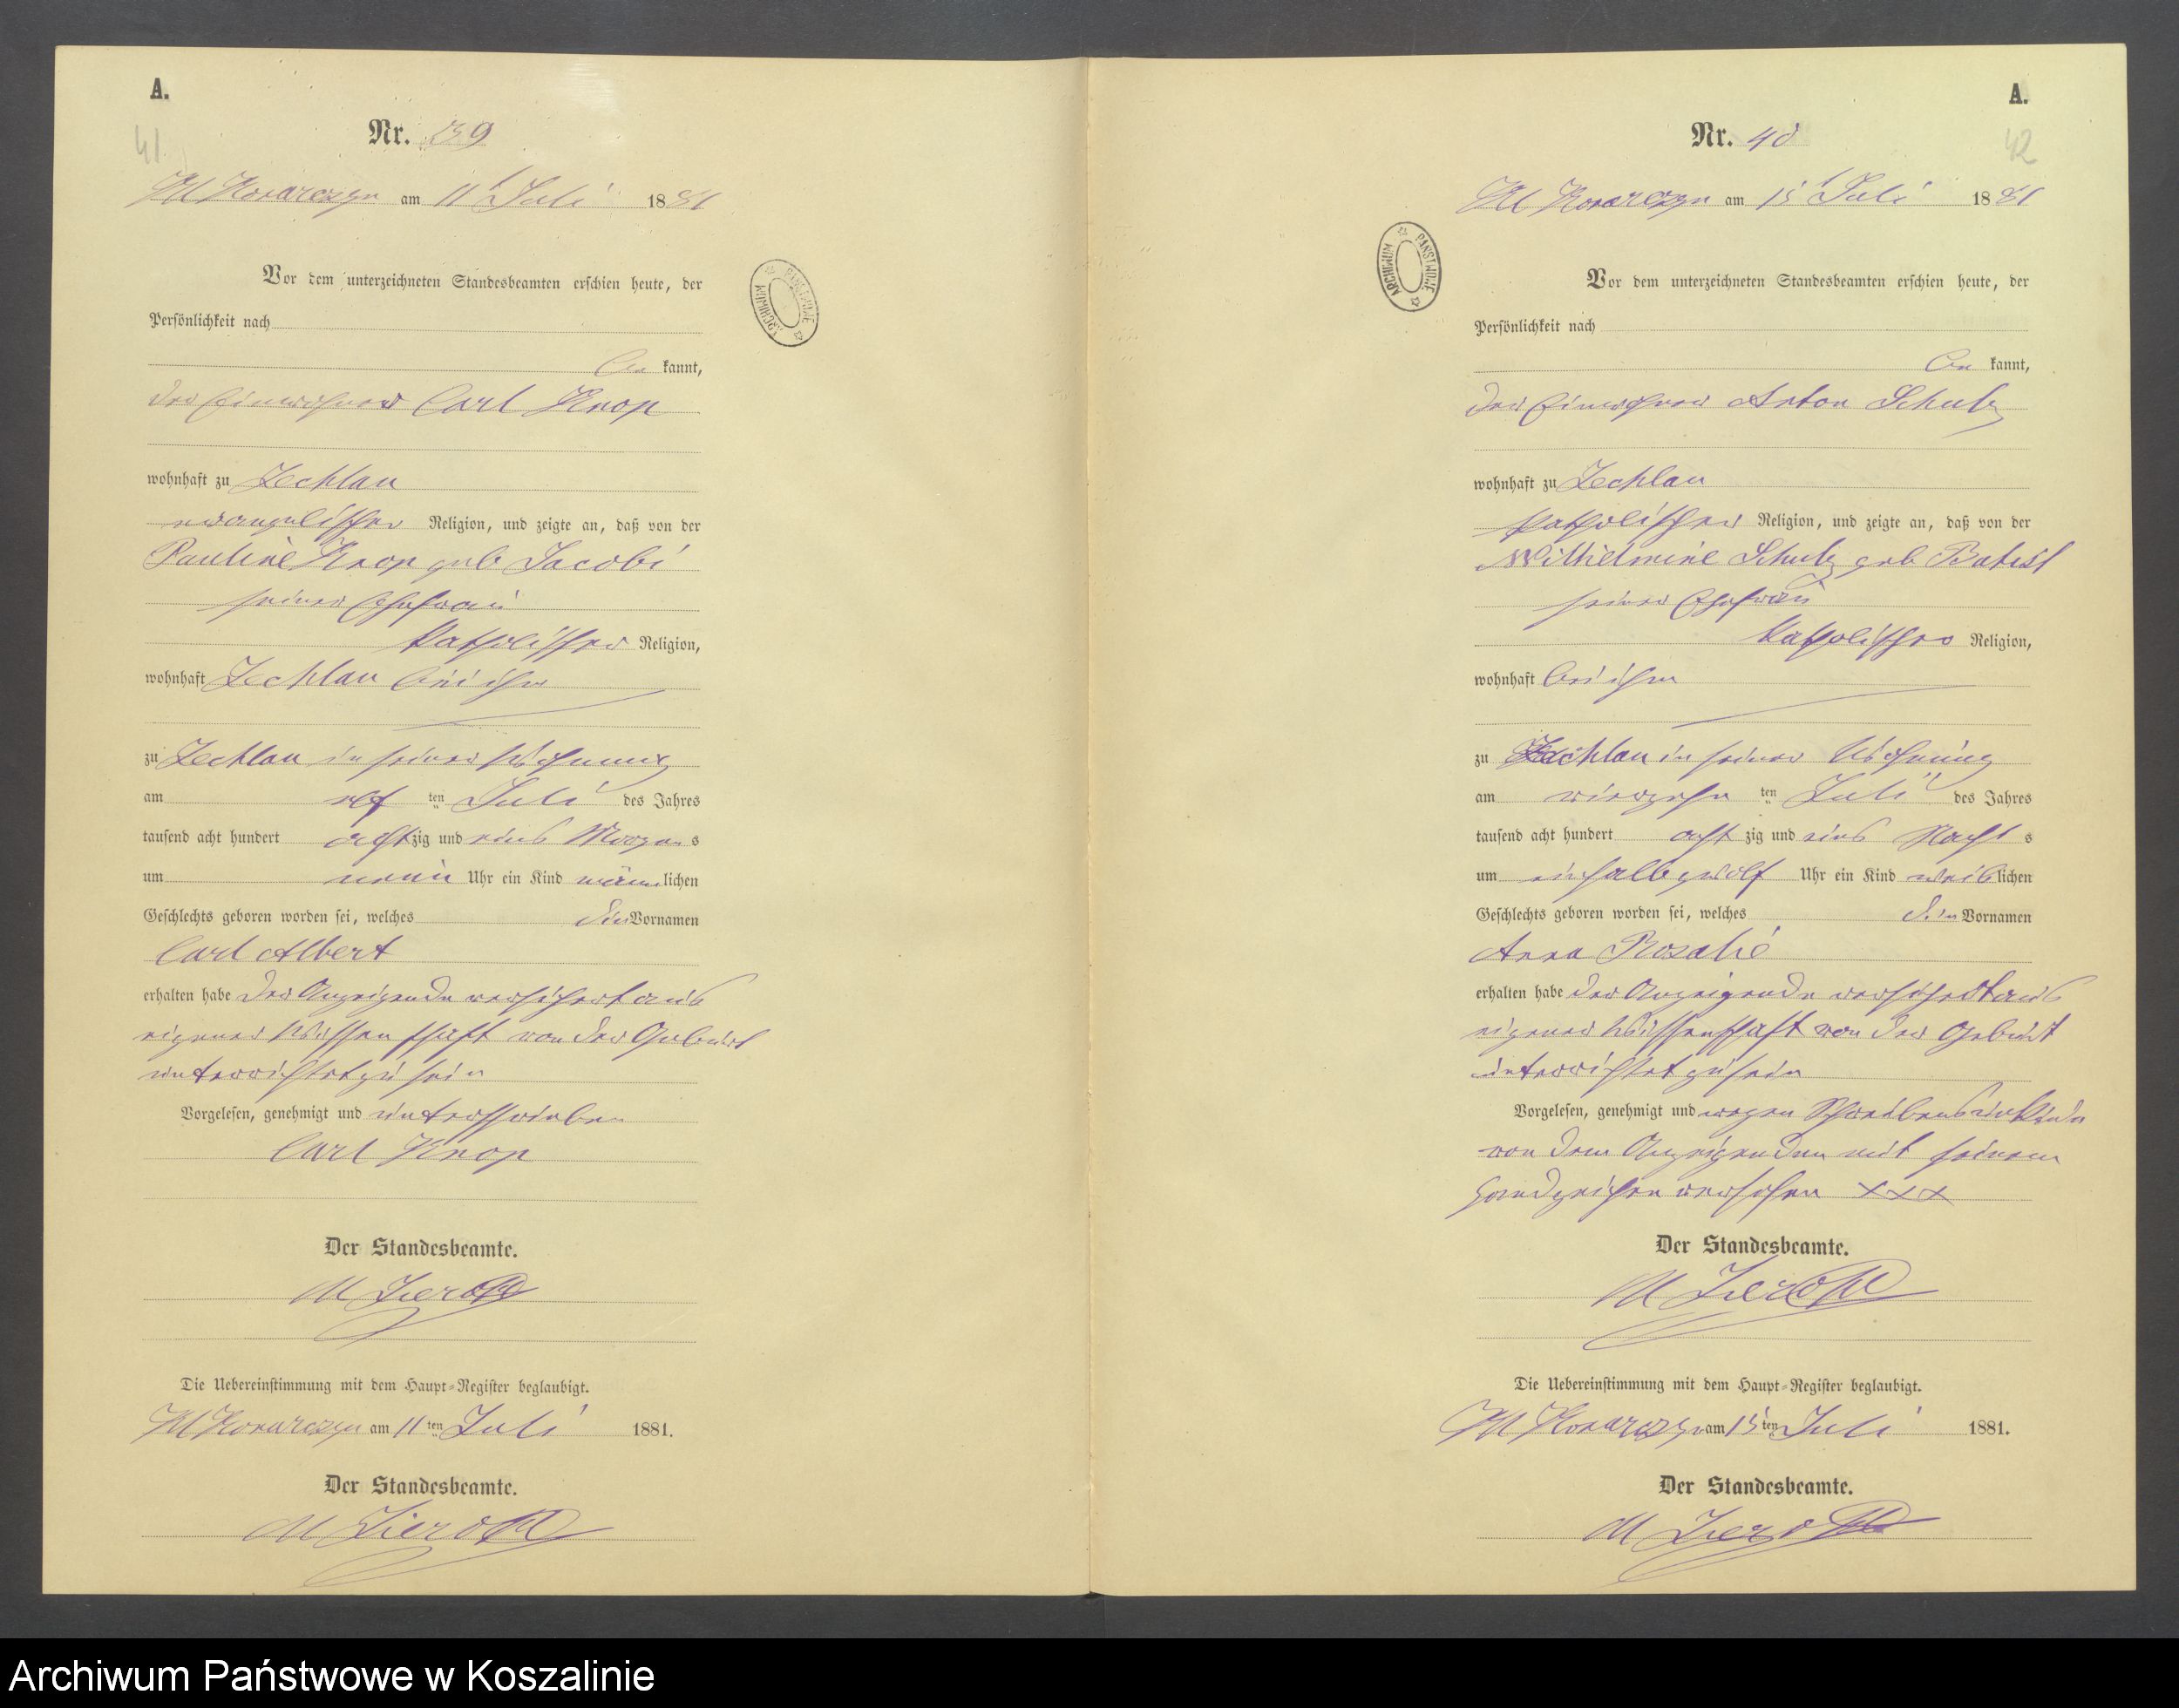 A.
41
Nr. 39
Kl Konarczyn am 11 Juli 1881
Vor dem unterzeichneten Standesbeamten erschien heute, der
Persönlichkeit nach
be kannt,
der Einwohner Carl Knop
wohnhaft zu Zechlau
evangelischer Religion, und zeigte an, daß von der
Pauline Knop geb Jacobi
seiner Ehefrau
katholischer Religion,
wohnhaft Zechlau bei ihm
zu Zechlau in seiner Wohnung
am elf ten Juli des Jahres
tausend acht hundert achtzig und eins Morgens
um neun Uhr ein Kind männlichen
Geschlechts geboren worden sei, welches die Vornamen
Carl Albert
erhalten habe der Anzeigende versichert aus
eigener Wissenschaft von der Geburt
unterrichtet zu sein
Vorgelesen, genehmigt und unterschrieben
Carl Knop
Der Standesbeamte.
Die Uebereinstimmung mit dem Haupt-Register beglaubigt.
Kl Konarczyn am 11ten Juli 1881.
Der Standesbeamte.
ARCHIWUM PAŃSTWOWE
A.
42
Nr. 40
Kl Konarczyn am 15 Juli 1881
ARCHIWUM PAŃSTWOWE
Vor dem unterzeichneten Standesbeamten erschien heute, der
Persönlichkeit nach
be kannt,
der Einwohner Anton Schulz
wohnhaft zu Zechlau
katholischer Religion, und zeigte an, daß von der
Wilhelmine Schulz geb
seiner Ehefrau
katholischer Religion,
wohnhaft bei ihm
zu Zechlau in seiner Wohnung
am vierzehn ten Juli des Jahres
tausend acht hundert acht zig und eins Nachts
um einhalbzwölf Uhr ein Kind weiblichen
Geschlechts geboren worden sei, welches die Vornamen
Anna Rosalie
erhalten habe der Anzeigende versichert aus
eigener Wissenschaft von der Geburt
unterrichtet zu sein
Vorgelesen, genehmigt und wegen Schreibensunkunde
von dem Anzeigenden mit seinem
Handzeichen versehen XXX
Der Standesbeamte.
Die Uebereinstimmung mit dem Haupt-Register beglaubigt.
Kl Konarczyn am 15ten Juli 1881.
Der Standesbeamte.
Archiwum Państwowe w Koszalinie